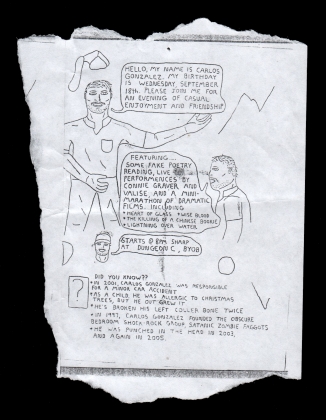 HELLO, MY NAME IS CARLOS
GONZALEZ. MY BIRTHDAY
IS WEDNESDAY, SEPTEMBER
18th. PLEASE JOIN ME FOR
AN EVENING OF CASUAL
ENJOYMENT AND FRIENDSHIP
FEATURING...
SOME FAKE POETRY
READING, LIVE
PERFORMENCES BY
CONNIE GRAVER AND
VALISE, AND A MINI-
MARATHON OF DRAMATIC
FILMS. INCLUDING
• HEART OF GLASS • WISE BLOOD
• THE KILLING OF A CHINESE BOOKIE
• LIGHTNING OVER WATER
STARTS @ 8PM SHARP
AT DUNGEON C, BYOB
?
DID YOU KNOW??
• IN 2001, CARLOS GONZALEZ WAS RESPONSIBLE
FOR A MINOR CAR ACCIDENT
• AS A CHILD HE WAS ALLERGIC TO CHRISTMAS
TREES, BUT HE OUT GREW IT
• HE'S BROKEN HIS LEFT COLLER BONE TWICE
• IN 1997, CARLOS GONZALEZ FOUNDED THE OBSCURE
BEDROOM SHOCK-ROCK GROUP, SATANIC ZOMBIE FAGGOTS
• HE WAS PUNCHED IN THE HEAD IN 2003,
AND AGAIN IN 2005.